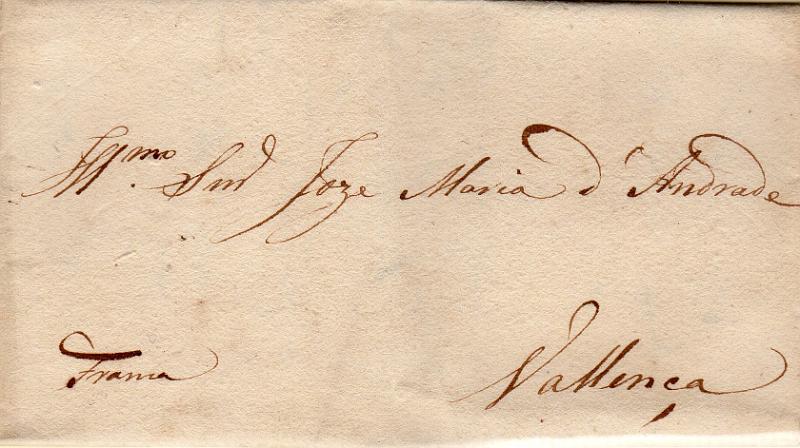 Illmo. Snr Joze Maria d'Andrade
Franca
Vallença